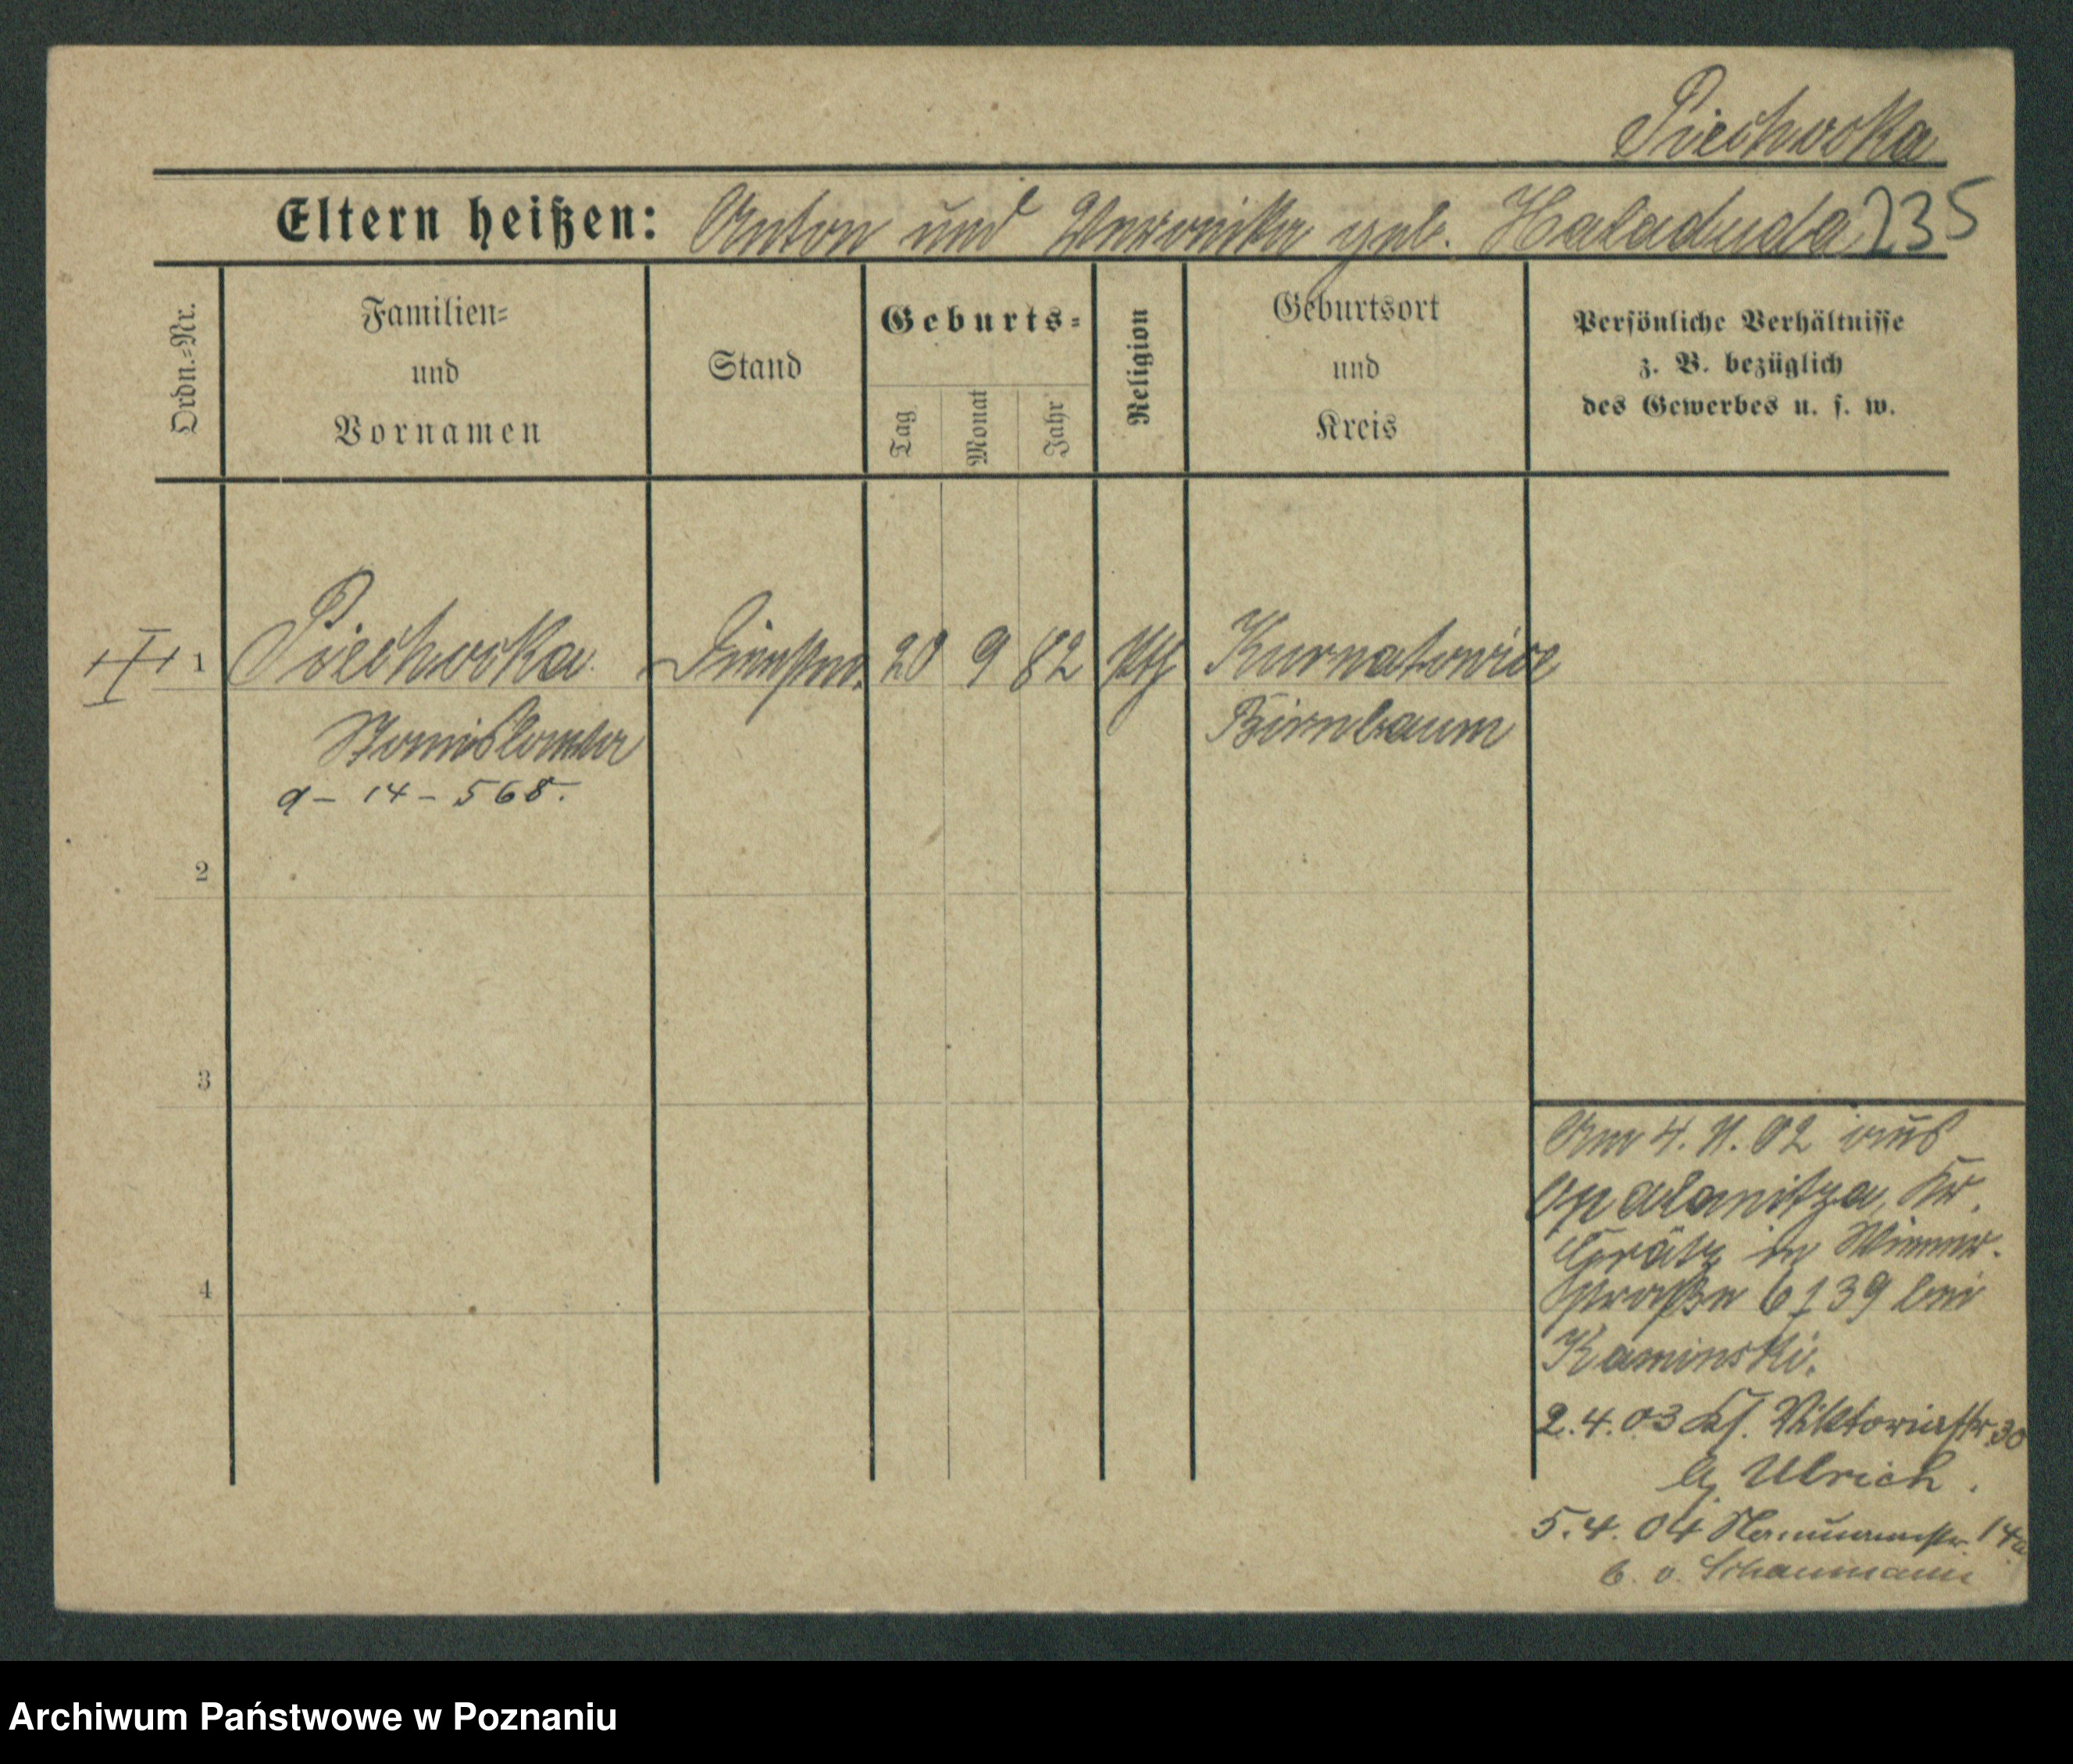 Piechocka
Eltern heißen: Anton und Veronika geb. Haladuda 235
Ordn.=Nr.
Familien=
und
Vornamen
Stand
Geburts=
Tag
Monat
Jahr
Religion
Geburtsort
und
Kreis
Persönliche Verhältnisse
z. B. bezüglich
des Gewerbes u. s. w.
1 Piechocka Dienstm. 20 9 82 kth Kurnatowice
Stanislawa Birnbaum
9 - 14 - 568.
2
3
4
Am 4. 11. 02 aus
Opalenitza, Kr.
Grätz in
straße 6 I 39 bei
Kaminski.
2.4.03 Viktoriastr. 30
b/ Ulrich.
5.4.04 14a
b. v.
Archiwum Państwowe w Poznaniu